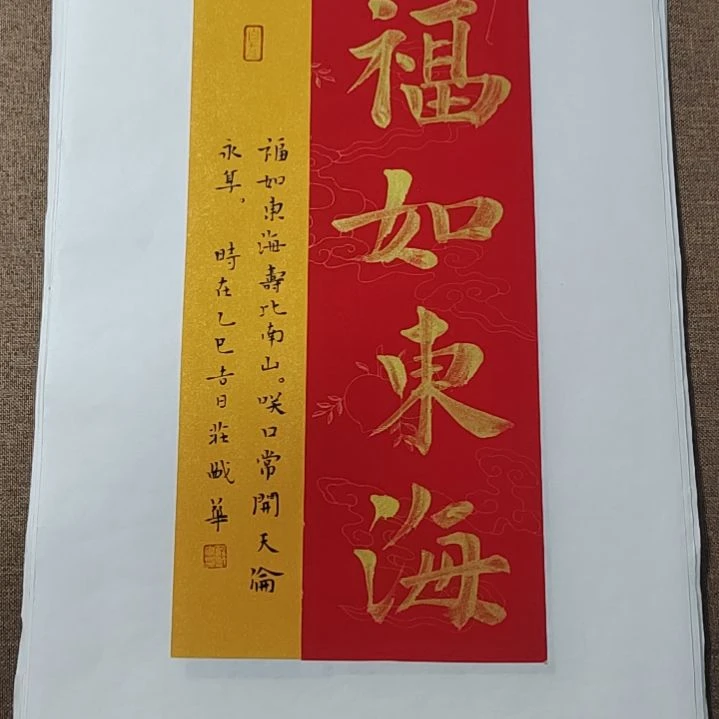 福如東海
福如東海壽比南山。咲口常開天淪
永享。 時在乙巳吉日莊華